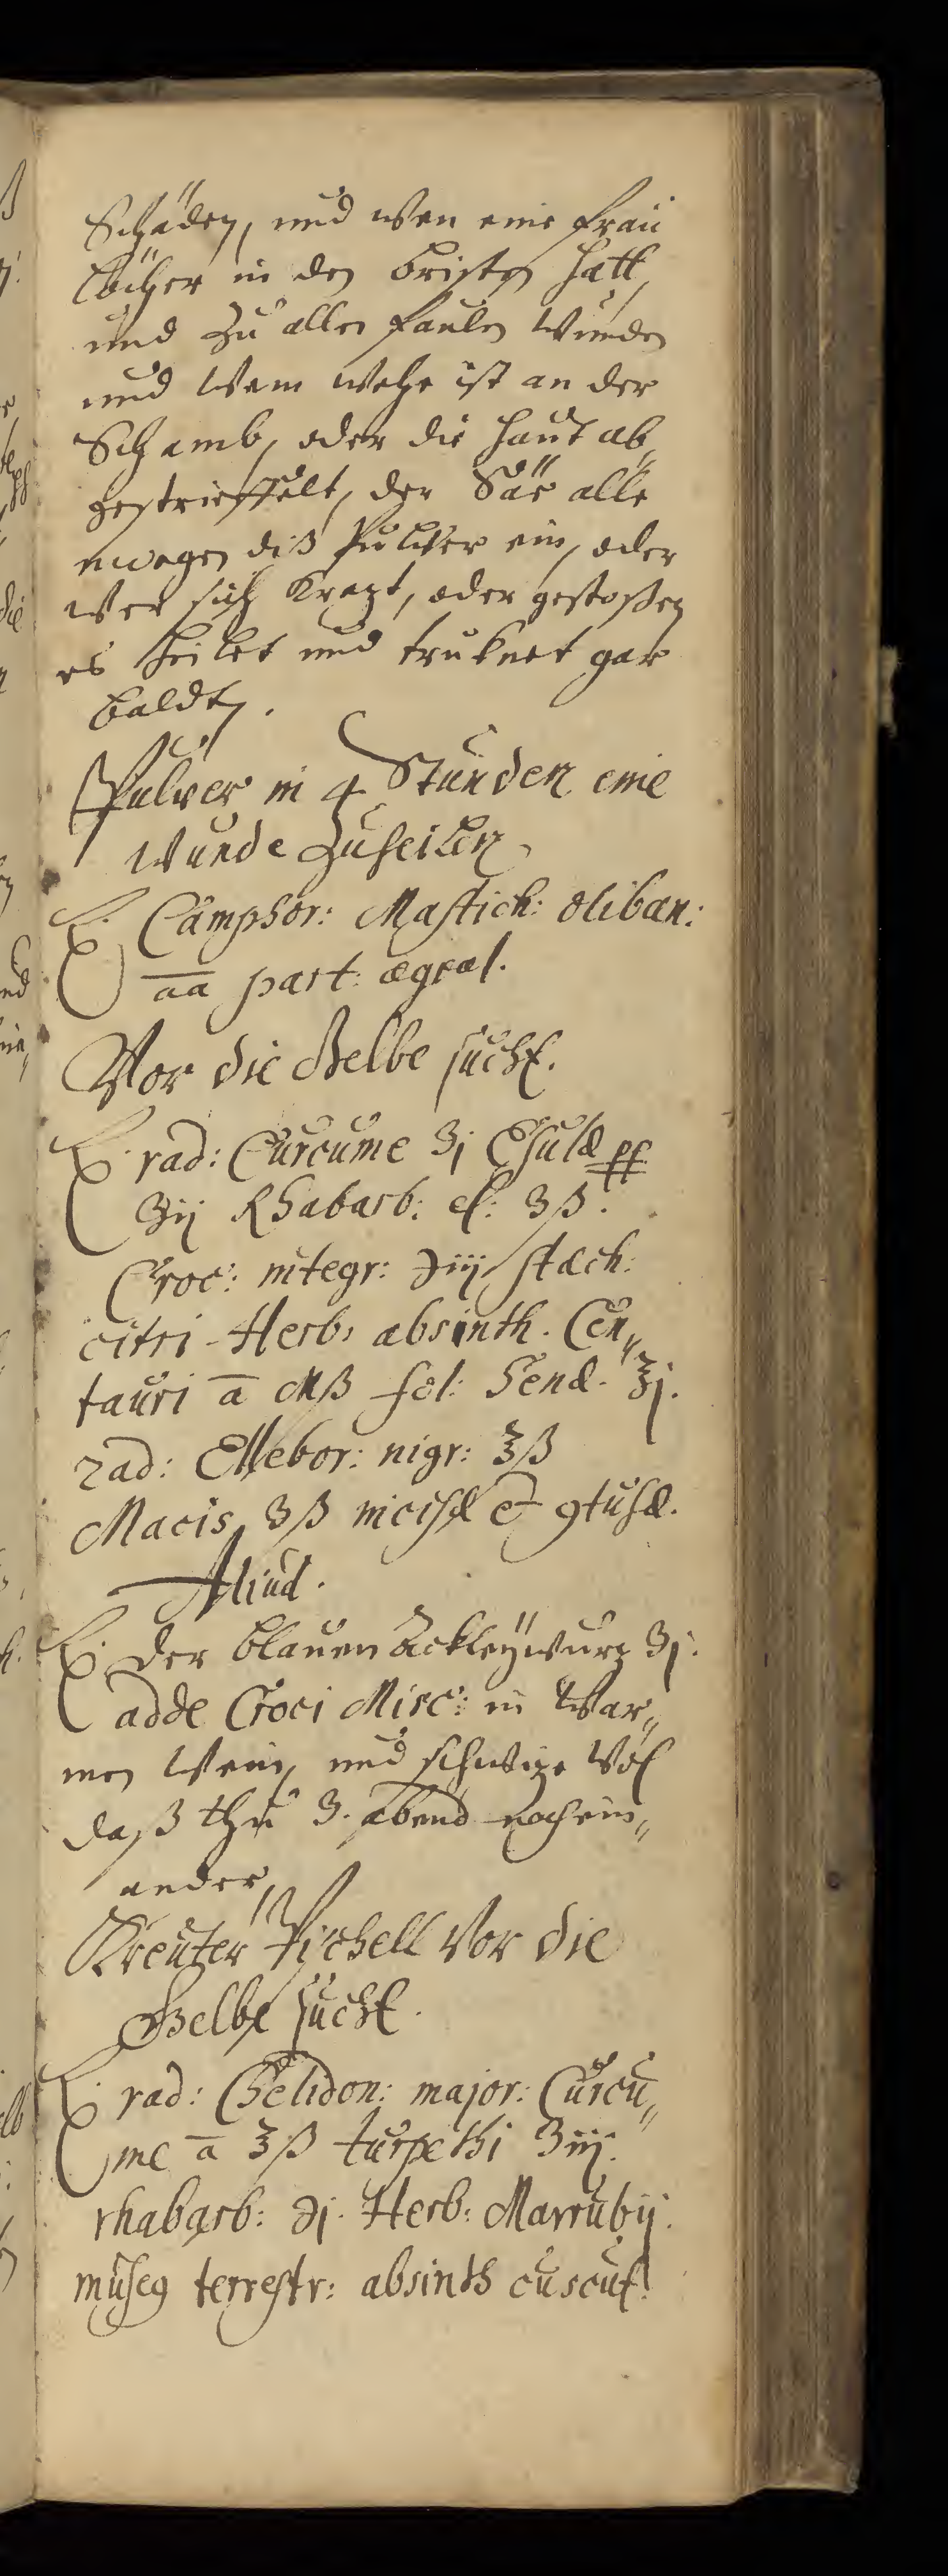 Schäden, und wen eine frau
löcher in den bristen hatt,
und zu allen faulen wunden
und wem wehe ist an der
Schamb, oder die haut ab
gestrieffelt, der Säe alle
wegen diß Pulver ein, oder
wer sich krazt, oder gestoßen
es heilet und truknet gar
baldt.
Pulver in 4 Stunden eine
wunde Zuheilen
℞ Camphor: Mastich: oliban:
aa part: æqval.
Vor die Gelbe sucht.
℞ rad: Curcume ʒj Esulæ pp
ʒij Rhabarb: el: ʒß.
Croc: integr: ℈iij stæch:
citri Herb: absinth. Cen„
tauri a Mß fol: Senæ. ℥j.
rad: Ellebor: nigr: ℥ß
Macis ʒß incisæ et 9tusæ.
Aliud.
℞ der blauen Ackleÿwurz ʒj.
adde Croci Misc: in war„
men wein, und schwize wol
daß thu 3. abend nachein„
ander,
Kreuter Pischell Vor die
Gelbe sucht.
℞ rad: Chelidon: major: Curcu„
me a ℥ß turpethi ʒiij.
rhabarb: ℈j. Herb: Marrubij.
musc9 terrestr: absinth cuscut.